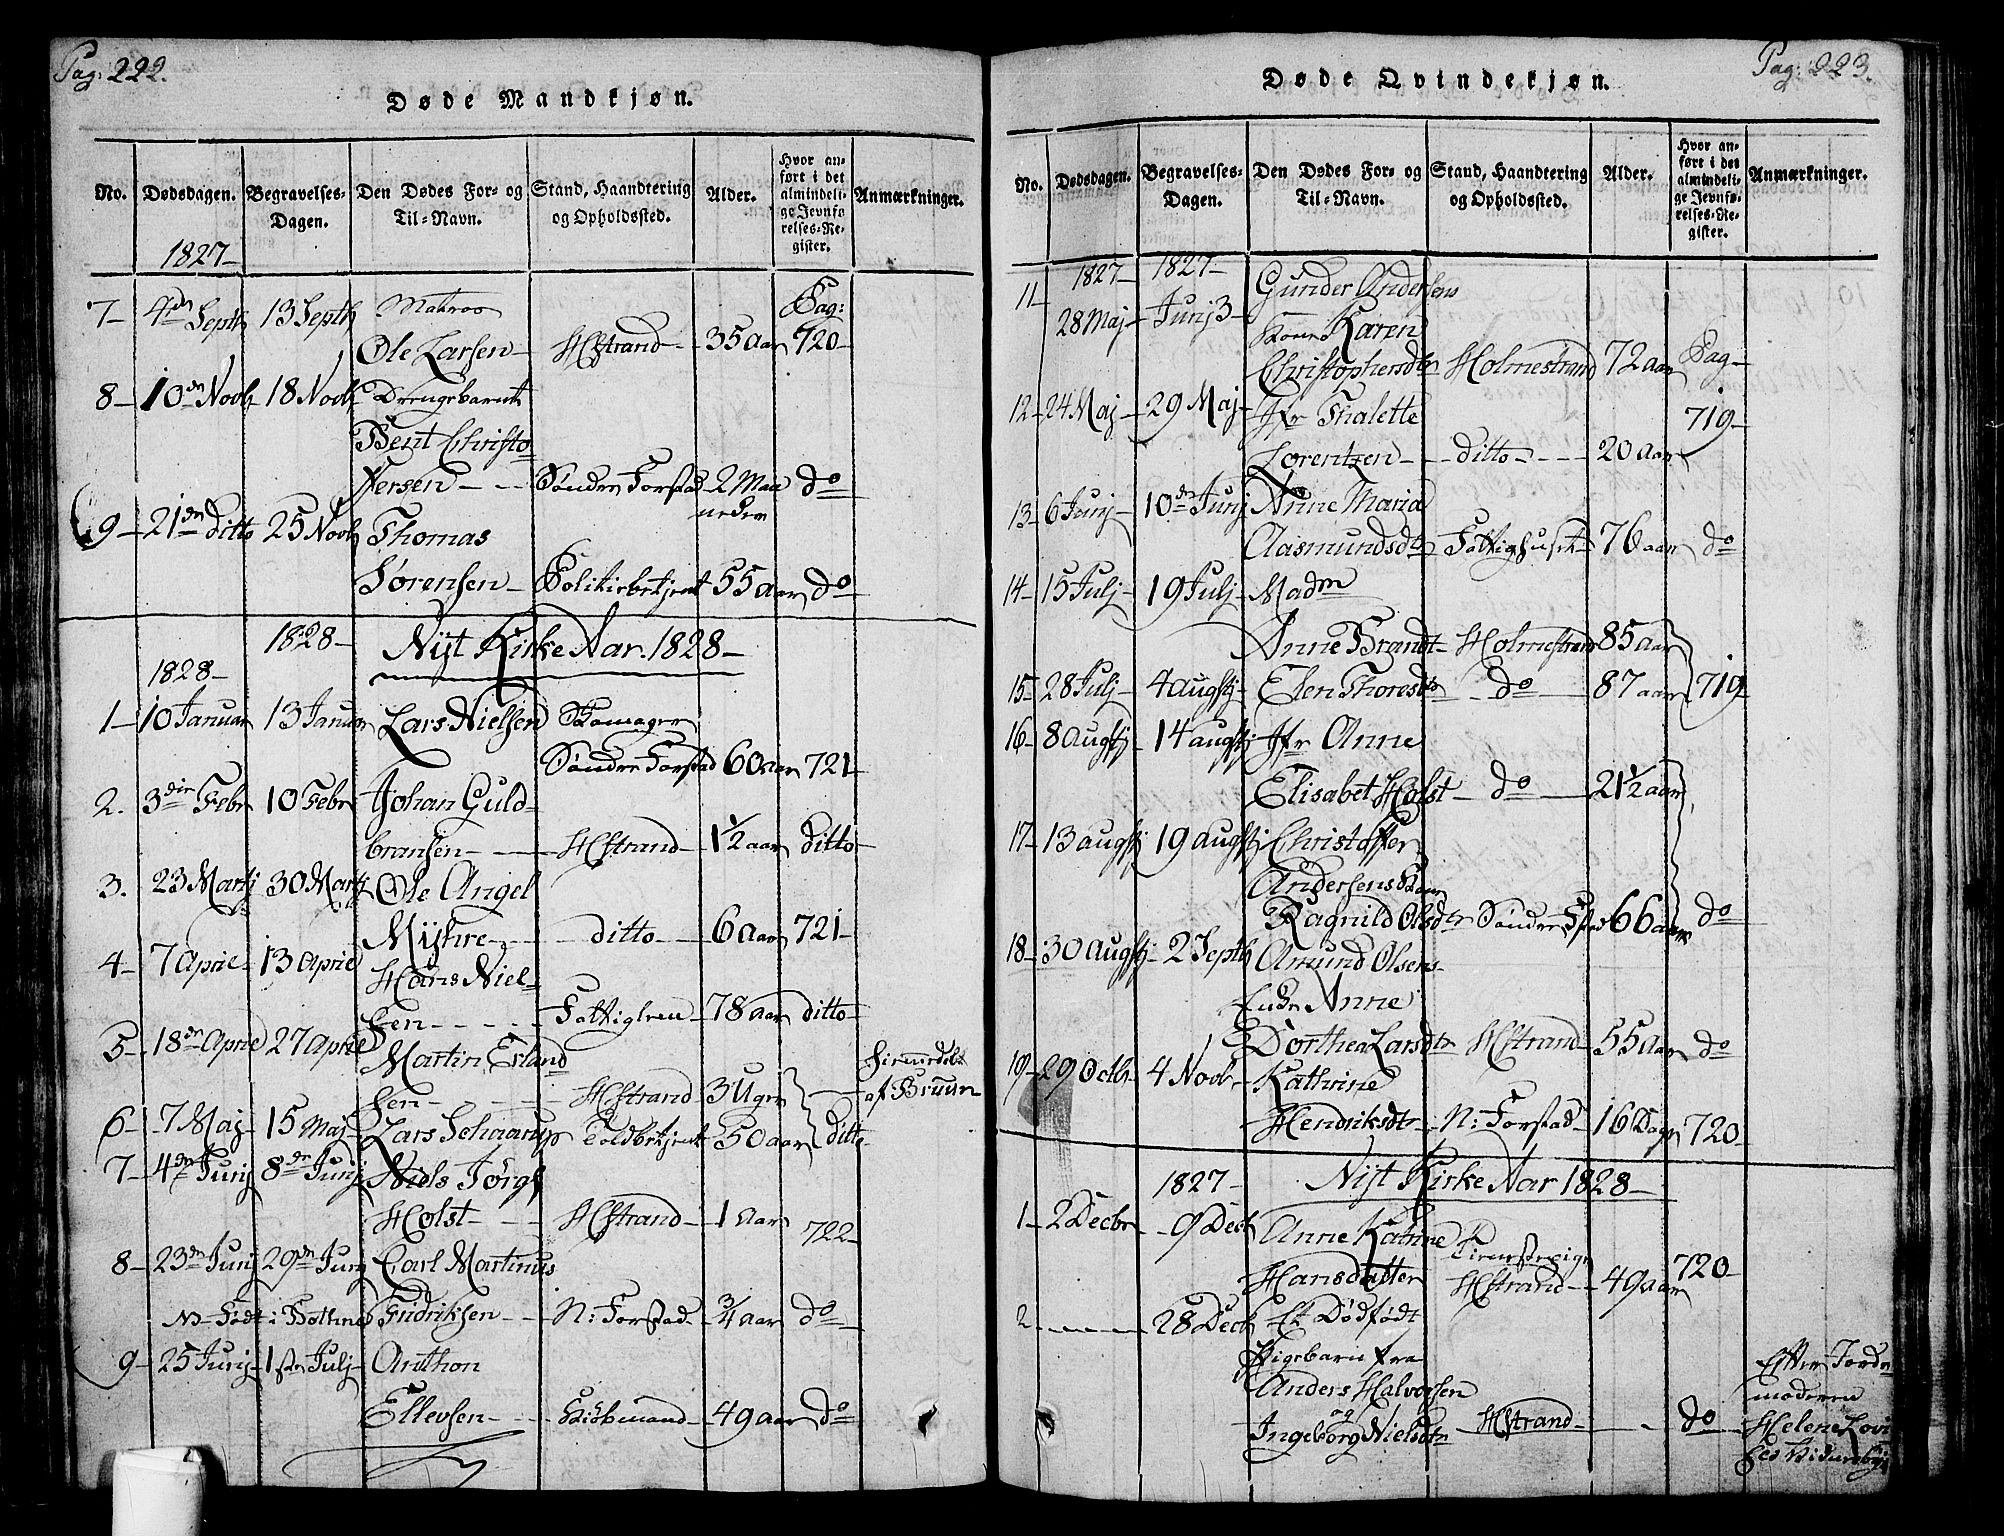 Pag: 222.
Døde Mandkjøn.
No. Dødsdagen. Begravelses-Dagen. Den Dødes For- og Til-Navn. Stand, Haandtering og Opholdssted. Alder. Hvor anført i det almindelige Jevnførelses-Register. Anmærkninger.
1827-
7- 4de Septb 13 Septb Matros Pag:
Ole Larsen- HStrand- 35 Aar 720-
8- 10de Novb- 18 Novb Drengebarnet
Bent Christo
fersen- - - Søndre Forstad- 2 Maa do
neder
9- 21de ditto 25 Novb Thomas
Sørensen- Politiebetjent 55 Aar do
1828- Nyt Kirke Aar. 1828-
1828-
1- 10 Januar 13 Januar Lars Nielsen Skomager
Søndre Forstad 60 aar 721-
2. 3die Febr 10 Febr Johan Guld-
bransen- HStrand- 1 1/2 aar ditto-
3. 23 Martj 30 Martj Ole Angel
Myhre- - ditto- 6 Aar 721-
4- 7 April- 13 April Hans Niel-
sen- - - - - Fattiglem- 78 Aar ditto-
5- 18de April 27 April Martin Erland
sen- HStrand 3 Ugr hiemedöbt
af Bruun
6- 7 Maj- 15 Maj- Lars Schaarup Toldbetjent 50 aar ditto
7- 4de Junj 8de Junj Niels Jørgf
Holst- - - HStrand- 1 Aar 722-
8- 23de Junj 29de Junj Carl Martinus
Født i Fridriksen- - N: Forstad- 3/4 aar do
9- 25 Junj- 1ste Julj- Anthon
Ellevsen- - mand- 49 Aar do
Pag: 223.
Døde Qvindekjøn.
No. Dødsdagen. Begravelses-Dagen. Den Dødes For- og Til-Navn. Stand, Haandtering og Opholdssted. Alder. Hvor anført i det almindelige Jevnførelses-Register. Anmærkninger.
1827- 1827-
11- 28 Maj- Junj 3- Gunder Andersens
Kone Karen
Christophersdtr Holmestrand 72 aar Pag-
12- 24 Maj- 29 Maj- Jfr Thalette 719-
Lorentzen- - ditto- - - 20 aar
13- 6 Junj- 10de Junj Anne Maria
Aasmundsdtr Fattighuset- 76 aar do
14- 15 Julj- 19 Julj- Madm
Anne Brandt- Holmestrand 85 aar
15- 28 Julj- 4 augstj- Elen Thoresdtr - do- 87 aar 719-
16- 8 Augstj- 14 augstj Jfr Anne
Elisabet Holst- do- 21 1/2 aar
17- 13 augstj 19 Augstj Christoffer
Andersens Kone
Ragnild Olsdtr Søndre Fstad 66 aar do
18- 30 Augstj- 2 Septb Amund Olsens-
Enke Anne
Dorthea Larsdtr HStrand- 55 Aar do
19- 29 Octbr- 4 Novb- Kathrine
Hendriksdtr- N: Forstad- 16 Dage 720-
1827- Nyt Kirke Aar 1828-
1- 2 Decbr- 9 Decb Anne Katrine
Hansdatter HStrand- 49 aar 720-
2- - - - 28 Decb Et Dødfødt
Pigebarn fra Efter Jorde
Anders Halvorsen moderen
og Ingeborg Nielsdtr HStrand- - do Helene Lovi